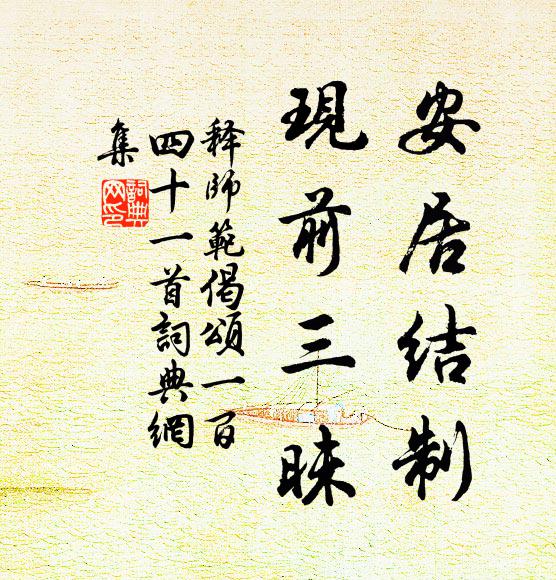 安居结制
現前三昧
释師範偈頌一百
四十一首詞典網
集
詞典
网印